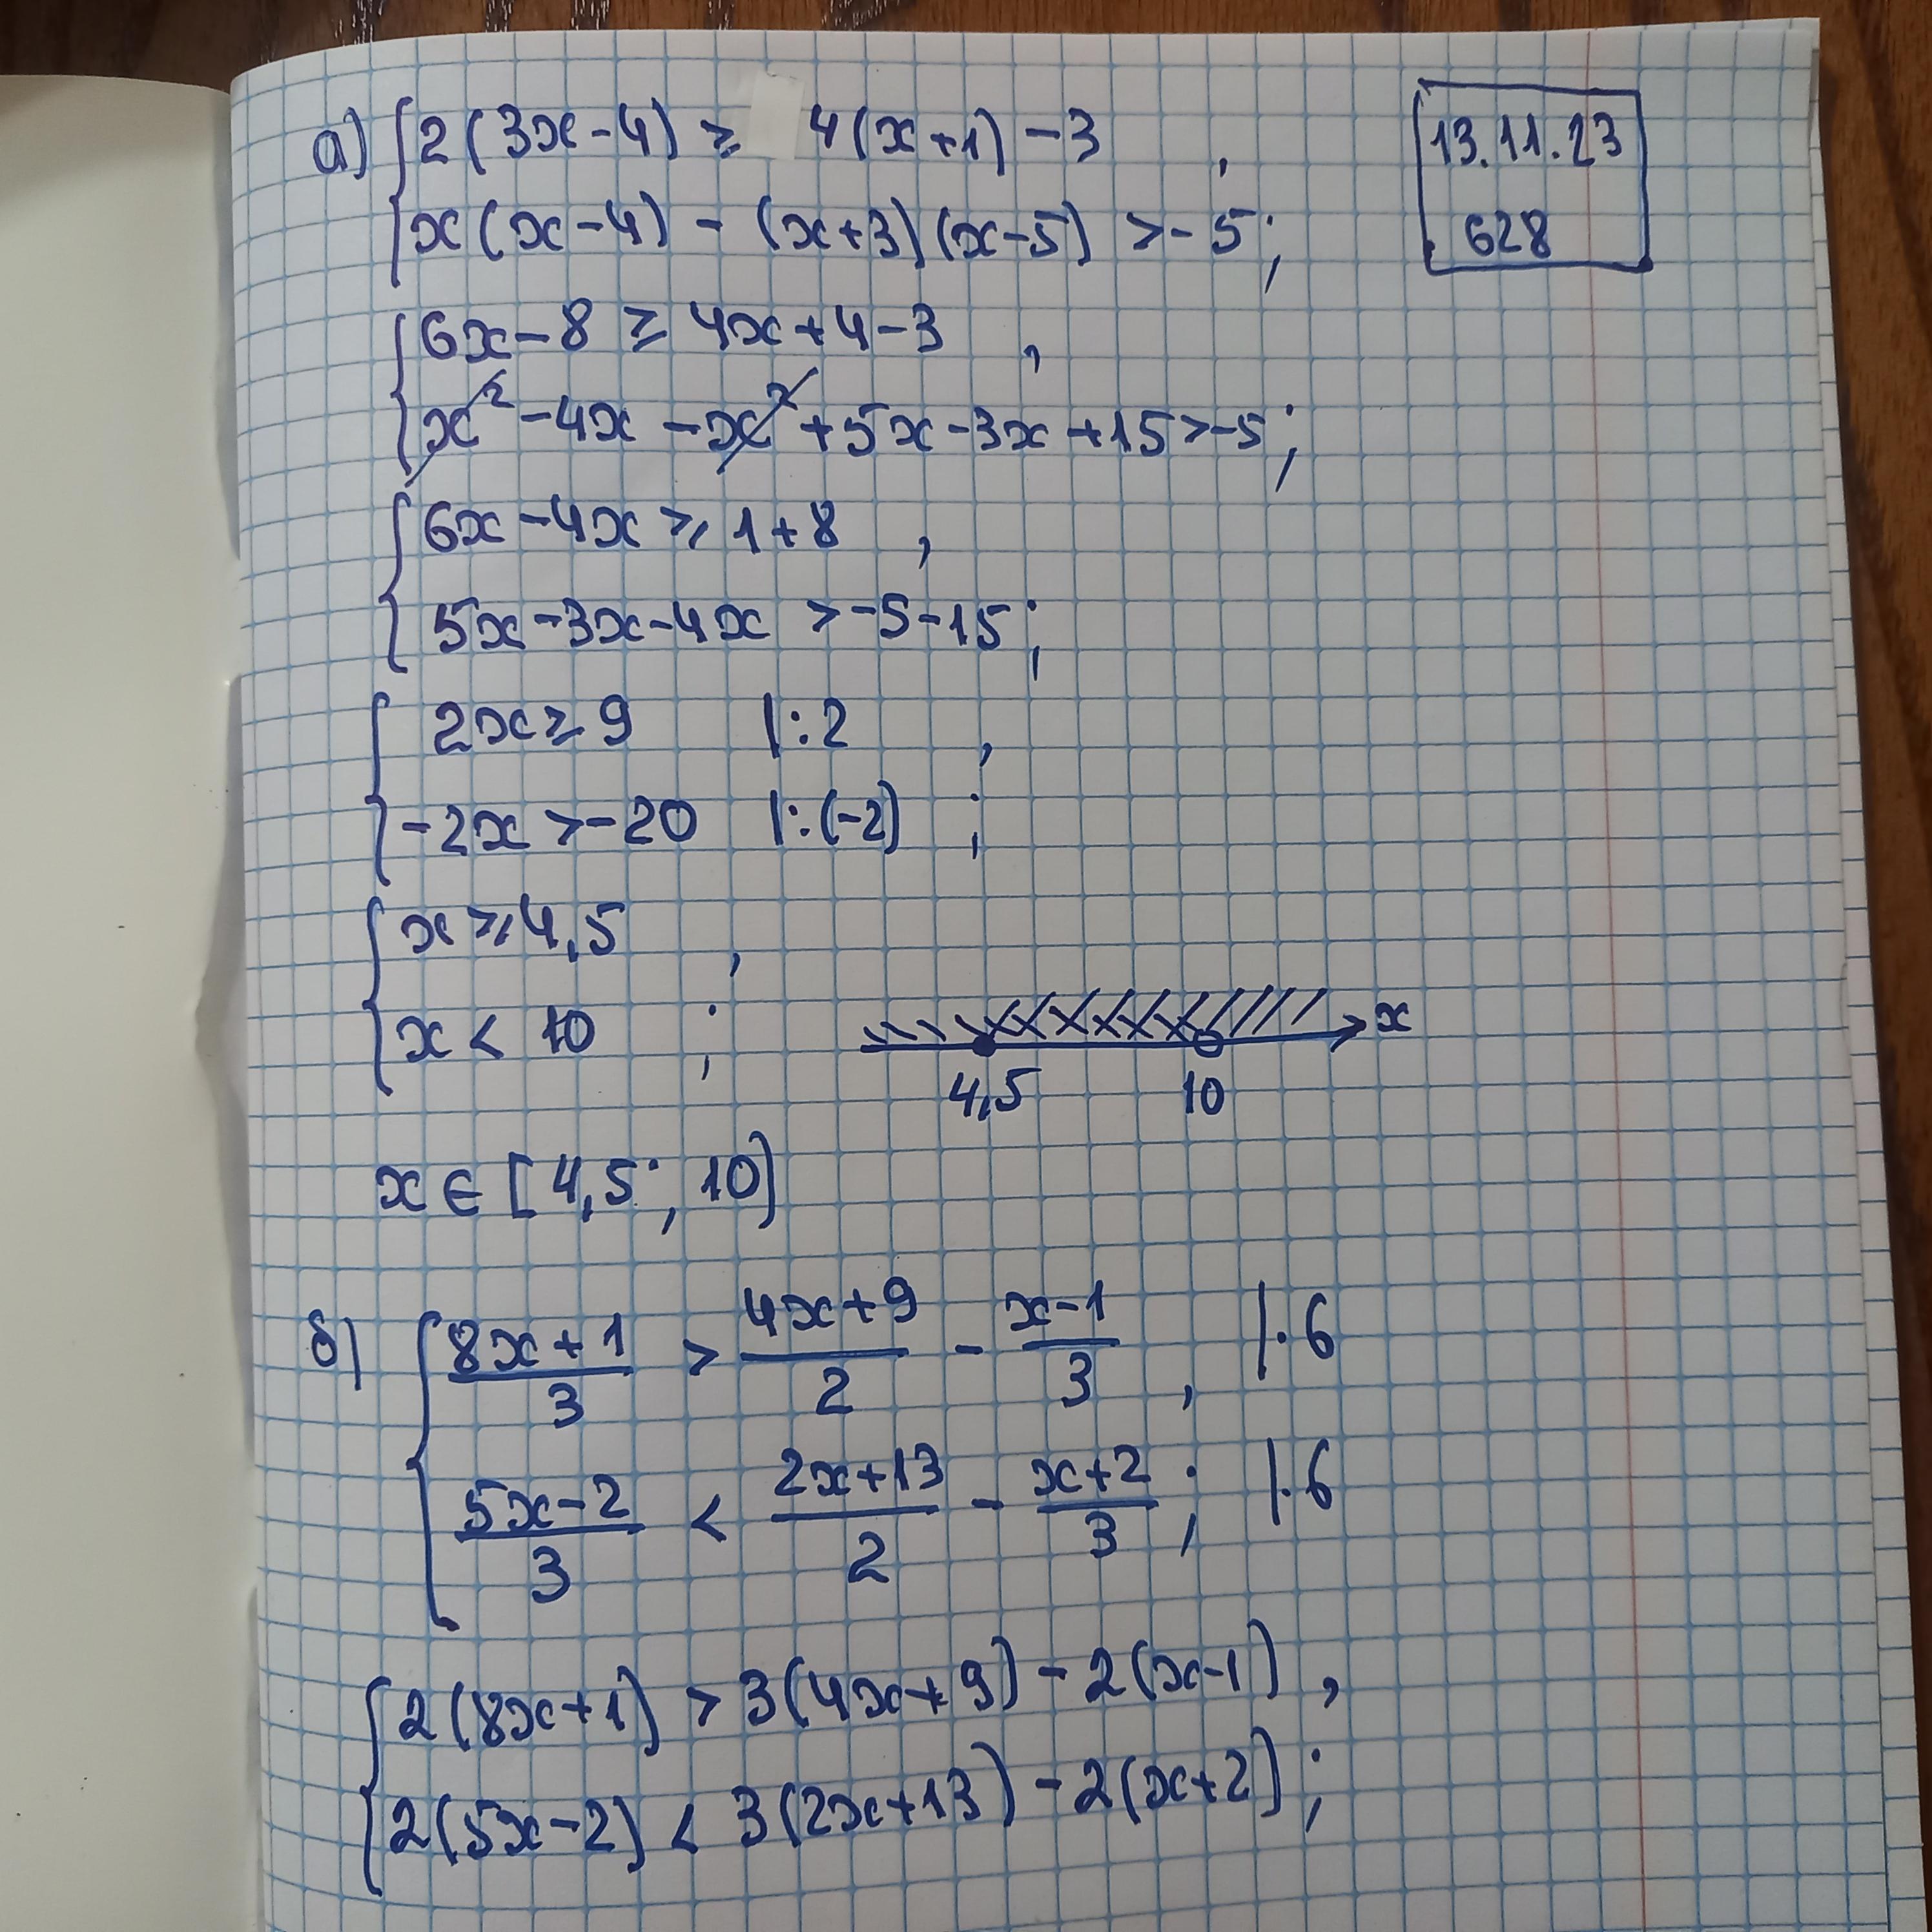 а) { 2(3x-4) ≥ 4(x+1) -3 ,
x(x-4) - (x+3)(x-5) >-5;
13.11.23
628
{ 6x-8 ≥ 4x+4-3 ,
x² -4x -x² +5x-3x+15>-5;
{ 6x-4x ≥ 1+8 ,
5x-3x-4x >-5-15;
{ 2x≥9 |:2 ,
-2x>-20 |:(-2) ;
{ x≥4,5 ,
x < 10 ;
x
4,5 10
x∈[4,5; 10)
б) { (8x+1)/3 > (4x+9)/2 - (x-1)/3 , |·6
(5x-2)/3 < (2x+13)/2 - (x+2)/3 ; |·6
{ 2(8x+1) > 3(4x+9) -2(x-1) ,
2(5x-2) < 3(2x+13) -2(x+2) ;